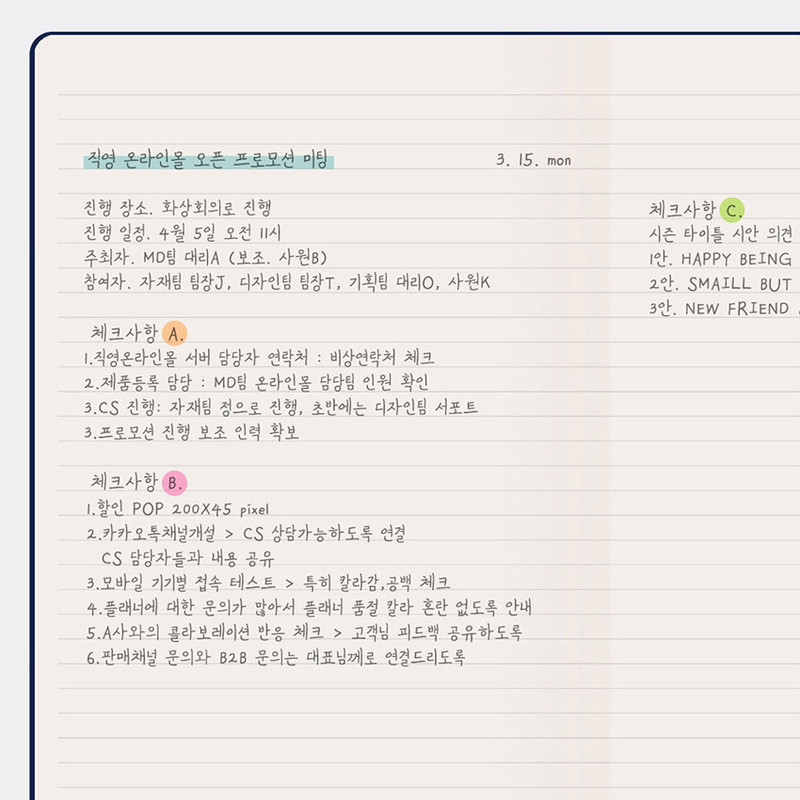 직영 온라인몰 오픈 프로모션 미팅
3. 15. mon
진행 장소. 화상회의로 진행
진행 일정. 4월 5일 오전 11시
주최자. MD팀 대리A (보조. 사원B)
참여자. 자재팀 팀장J, 디자인팀 팀장T, 기획팀 대리O, 사원K
체크사항 A.
1.직영온라인몰 서버 담당자 연락처 : 비상연락처 체크
2.제품등록 담당 : MD팀 온라인몰 담당팀 인원 확인
3.CS 진행: 자재팀 정으로 진행, 초반에는 디자인팀 서포트
3.프로모션 진행 보조 인력 확보
체크사항 B.
1.할인 POP 200X45 pixel
2.카카오톡채널개설 > CS 상담가능하도록 연결
CS 담당자들과 내용 공유
3.모바일 기기별 접속 테스트 > 특히 칼라감,공백 체크
4.플래너에 대한 문의가 많아서 플래너 품절 칼라 혼란 없도록 안내
5.A사와의 콜라보레이션 반응 체크 > 고객님 피드백 공유하도록
6.판매채널 문의와 B2B 문의는 대표님께로 연결드리도록
체크사항 C.
시즌 타이틀 시안 의견
1안. HAPPY BEING
2안. SMAILL BUT
3안. NEW FRIEND